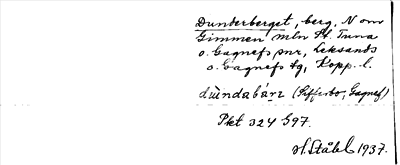 Dunderberget, berg, N om
Gimmen mln St. Tuna
o. Gagnefs snr, Leksands
o. Gagnefs tg, Kopp. l.
(Sifferbo, Gagnef)
Pkt 324 G97.
H. Ståhl 1937.